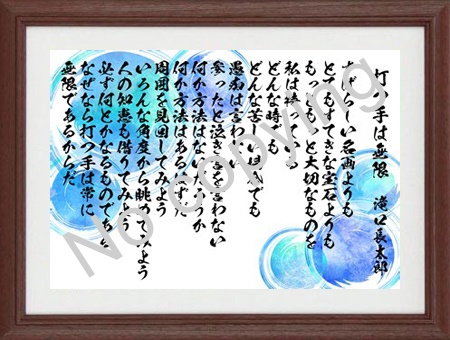 打つ手は無限　滝口長太郎
すばらしい名画よりも
とてもすてきな宝石よりも
もっともっと大切なものを
私は持っている
どんな時でも
どんな苦しい場合でも
愚痴は言わない
参ったと泣きごとを言わない
何か方法はないだろうか
何か方法はあるはずだ
周囲を見回してみよう
いろんな角度から眺めてみよう
人の知恵も借りてみよう
必ず何とかなるものである
なぜなら打つ手は常に
無限であるからだ
No copying